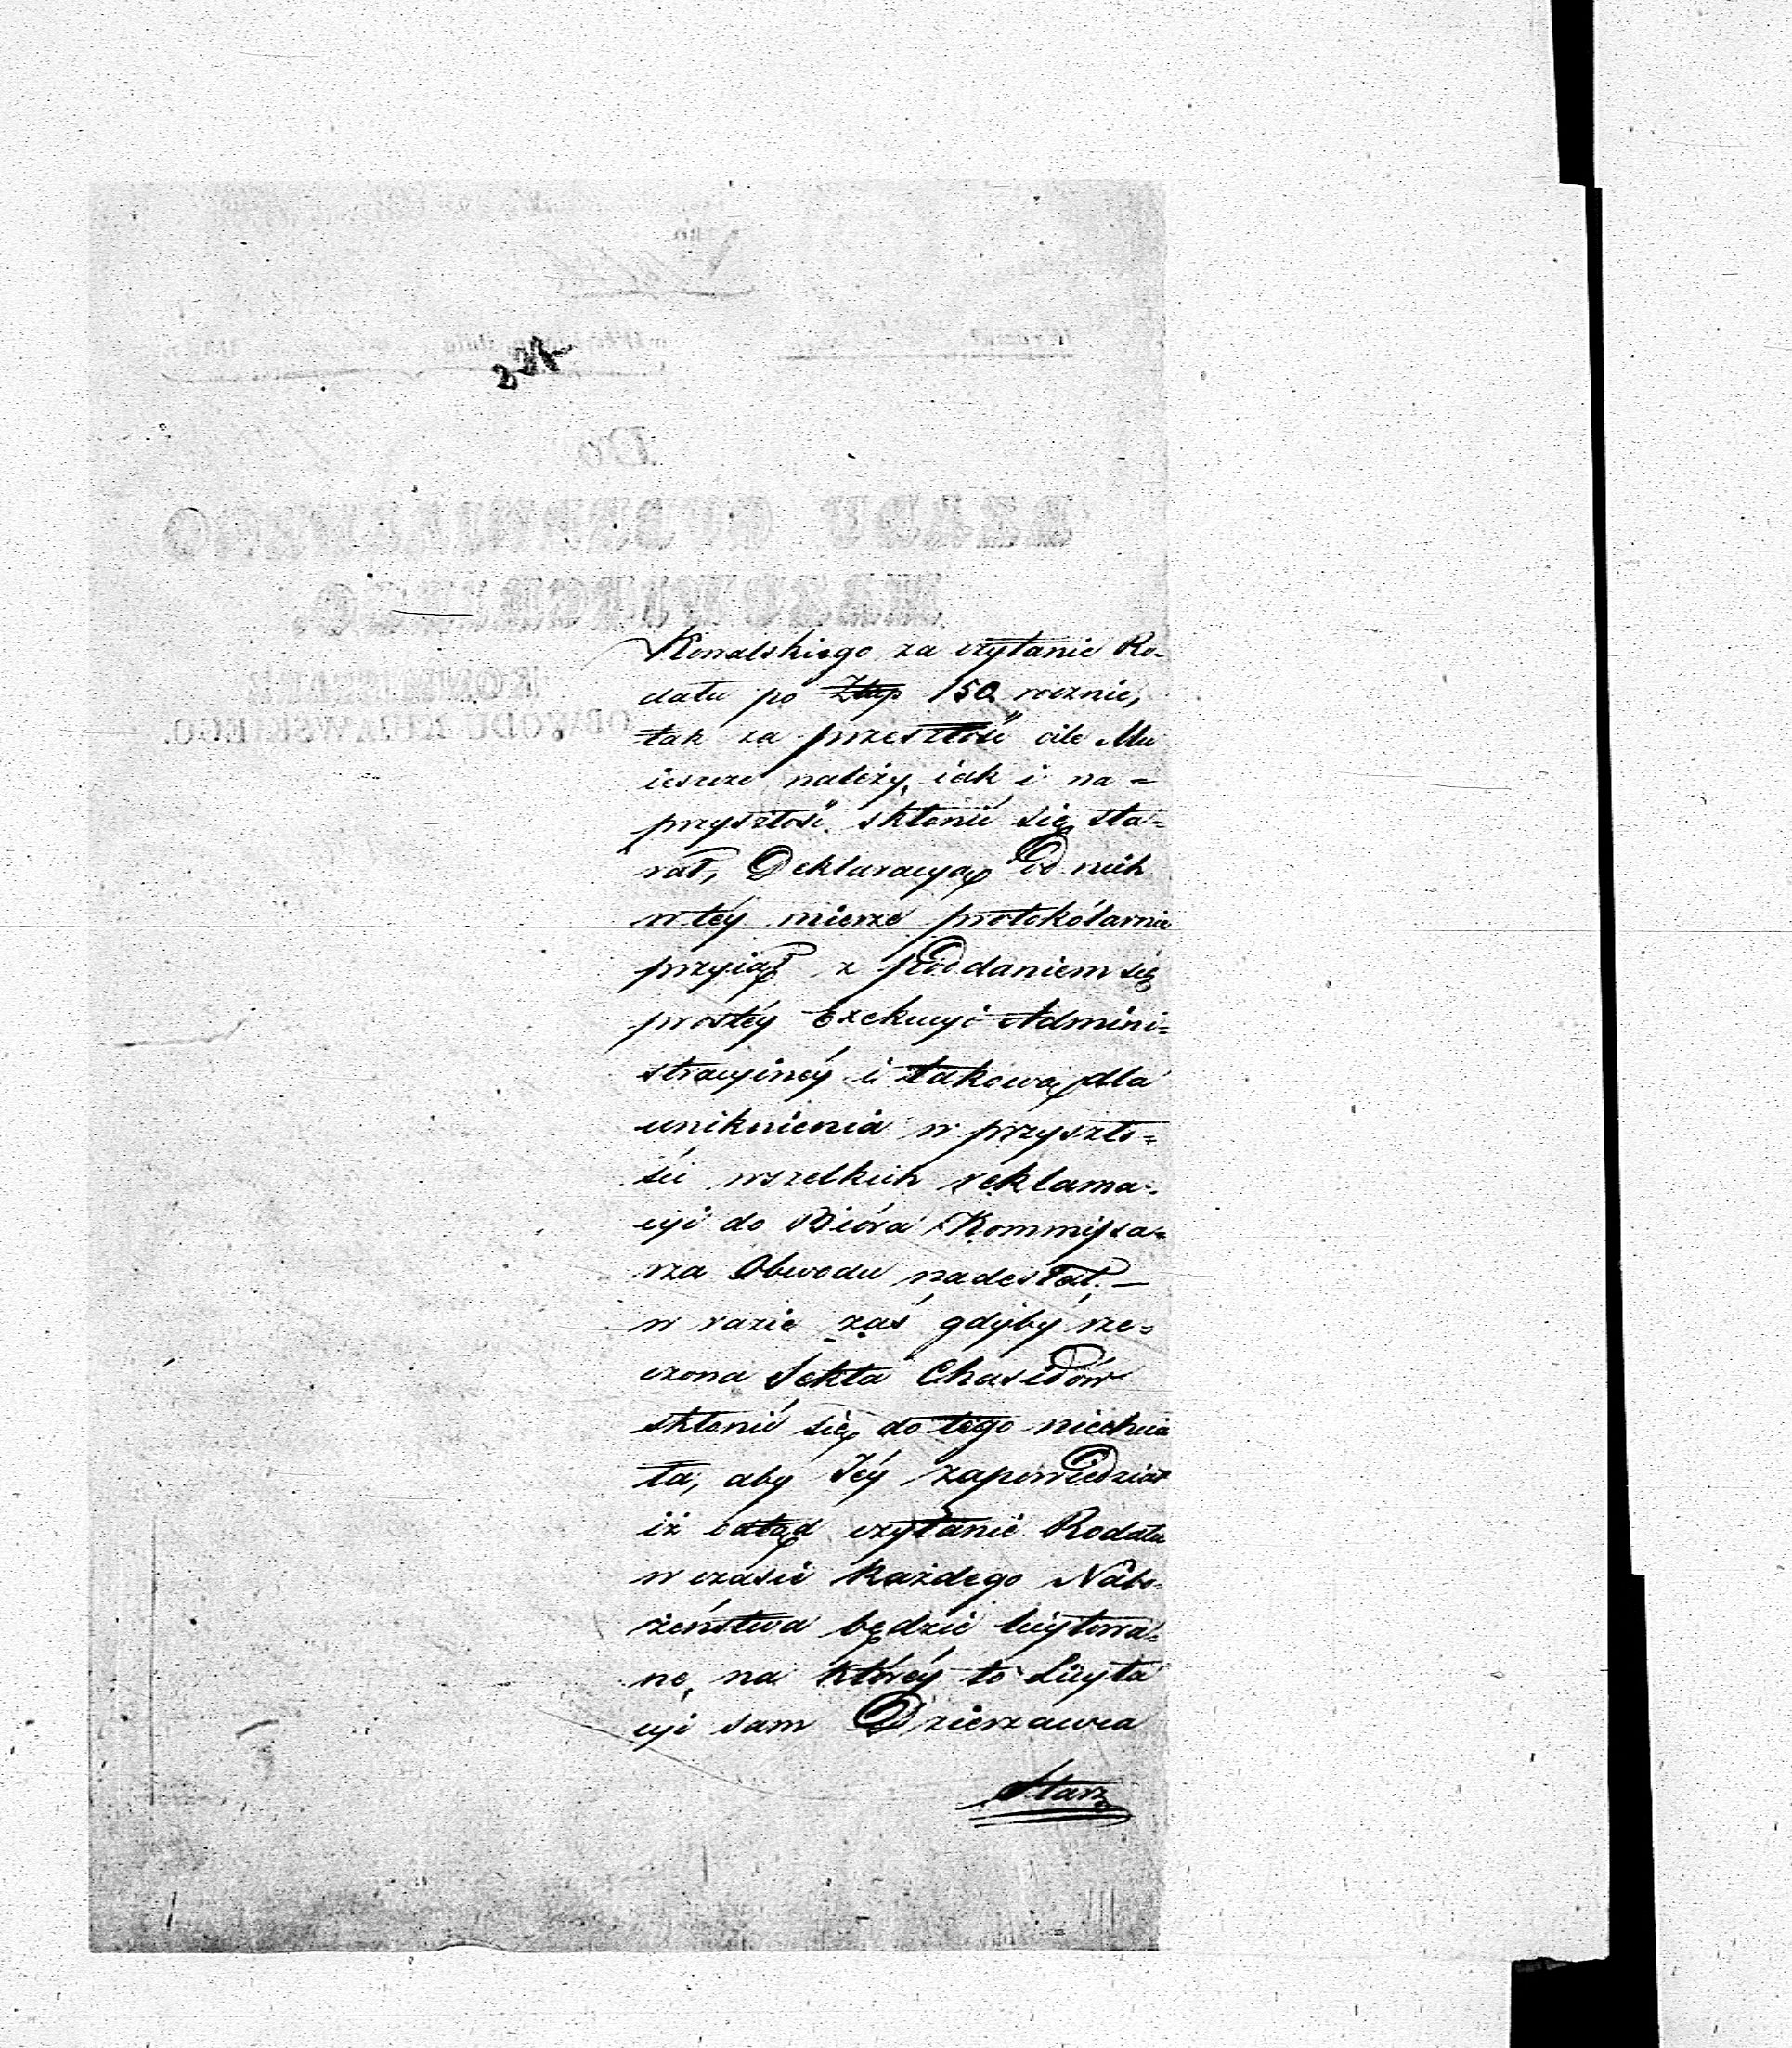 237
Kowalskiego za czytanie Ro-
dału po Złłp 150 rocznie,
tak za przeszłość ile Mu
ieszcze należy, iak i na=
przyszłość skłonić się sta=
rał, Deklaracyą od nich
w téy mierze protokólarnie
przyiął z poddaniem się
prostéy Exekucyi Admini=
stracyinéy i takową dla
uniknienia w przyszło=
ści wszelkich reklama=
cyi do Bióra Kommissa=
rza Obwodu nadesłał. —
w razie zaś gdyby rze=
czona Sekta Chasidów
skłonić się do tego niechcia
ła, aby Jéy zapowiedział
iż odtąd czytanie Rodału
w czasie każdego Nabo=
żeństwa będzie licytowa=
ne, na któréy to Licyta
cyi sam Dzierzawca
Starz